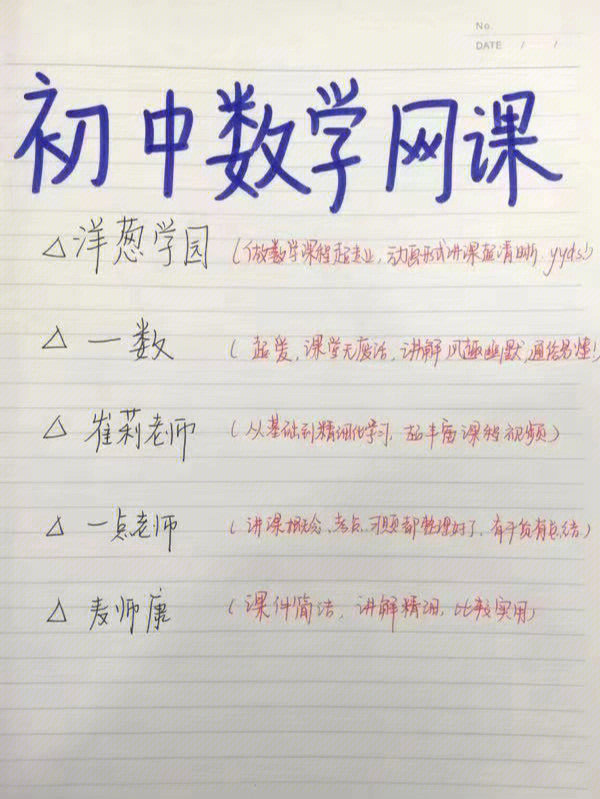 No.
DATE / /
初中数学网课
△ 洋葱学园 (做数学课程超专业,动画形式讲课超清晰 yyds!)
△ 一数 (超爱,课堂无废话,讲解风趣幽默,通俗易懂!)
△ 崔莉老师 (从基础到精细化学习,超丰富课程视频)
△ 一点老师 (讲课概念、考点、习题都整理好了,有干货有总结)
△ 麦师康 (课件简洁,讲解精细,比较实用)